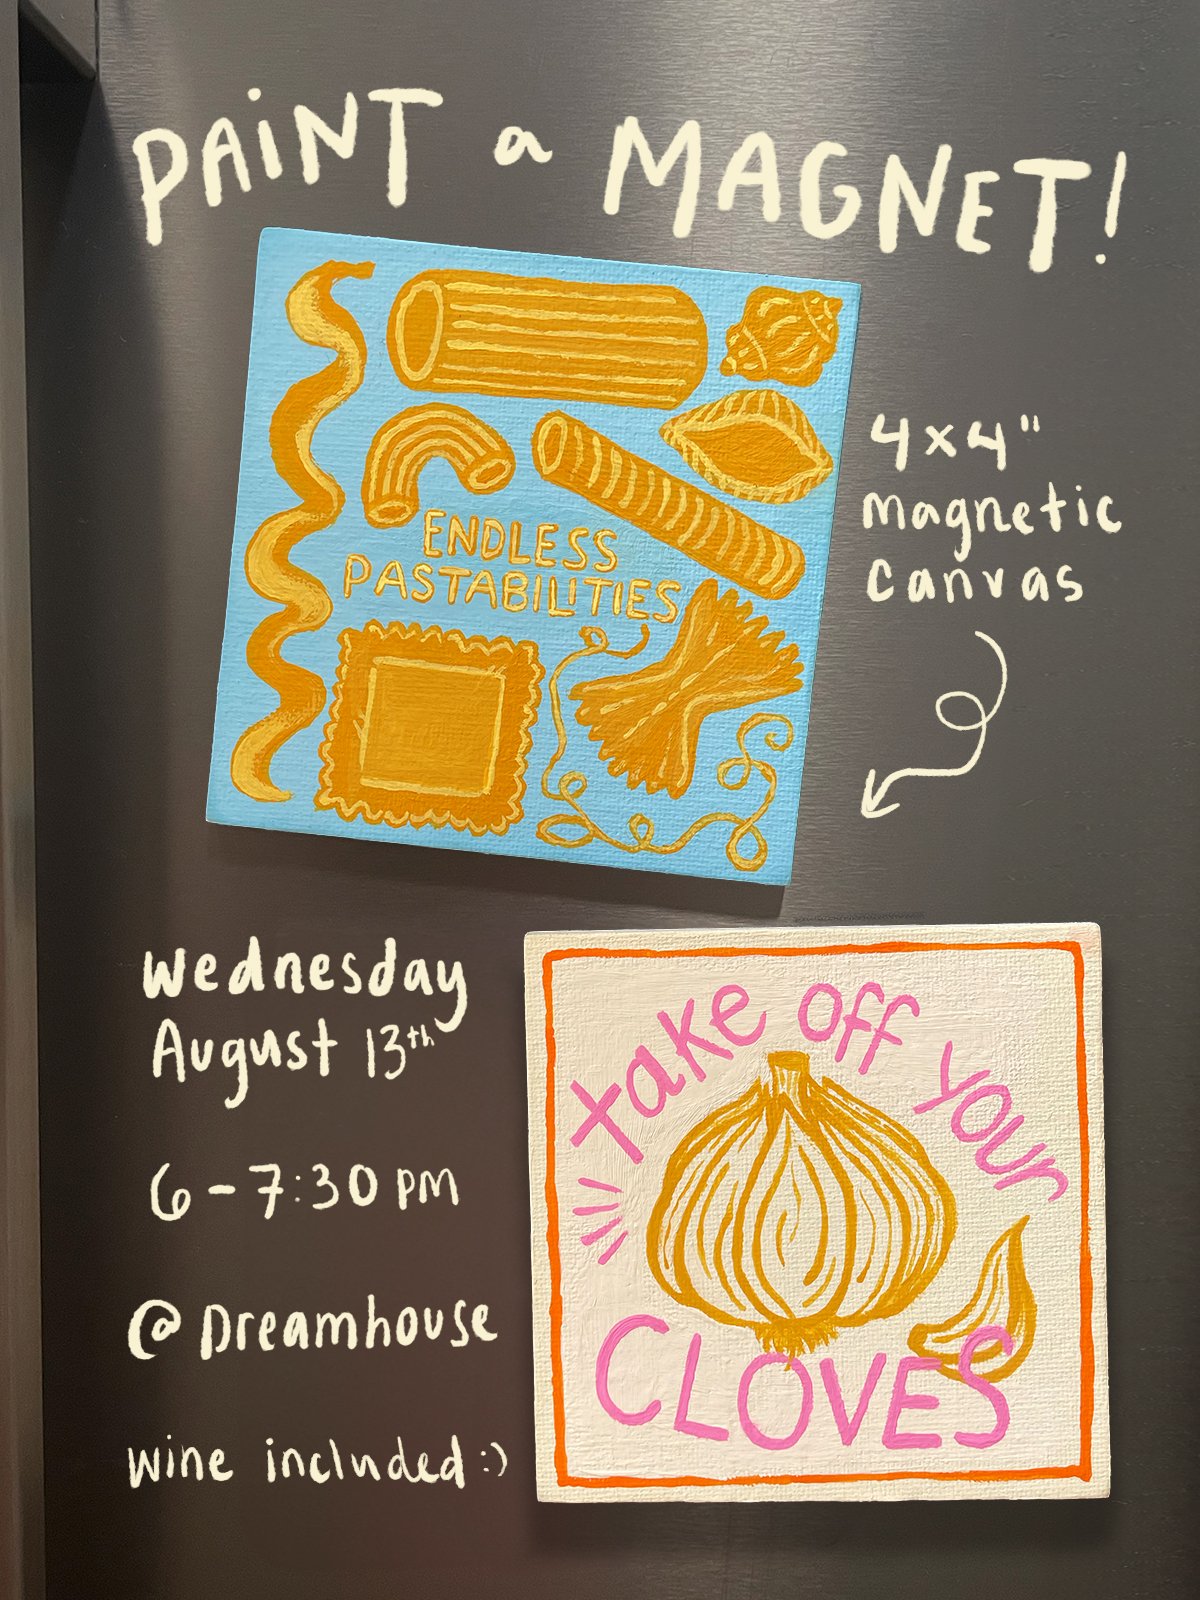 PAINT a MAGNET!
ENDLESS
PASTABILITIES
4x4"
magnetic
canvas
Wednesday
August 13th
6-7:30 PM
@ Dreamhouse
wine included :)
take off your
CLOVES